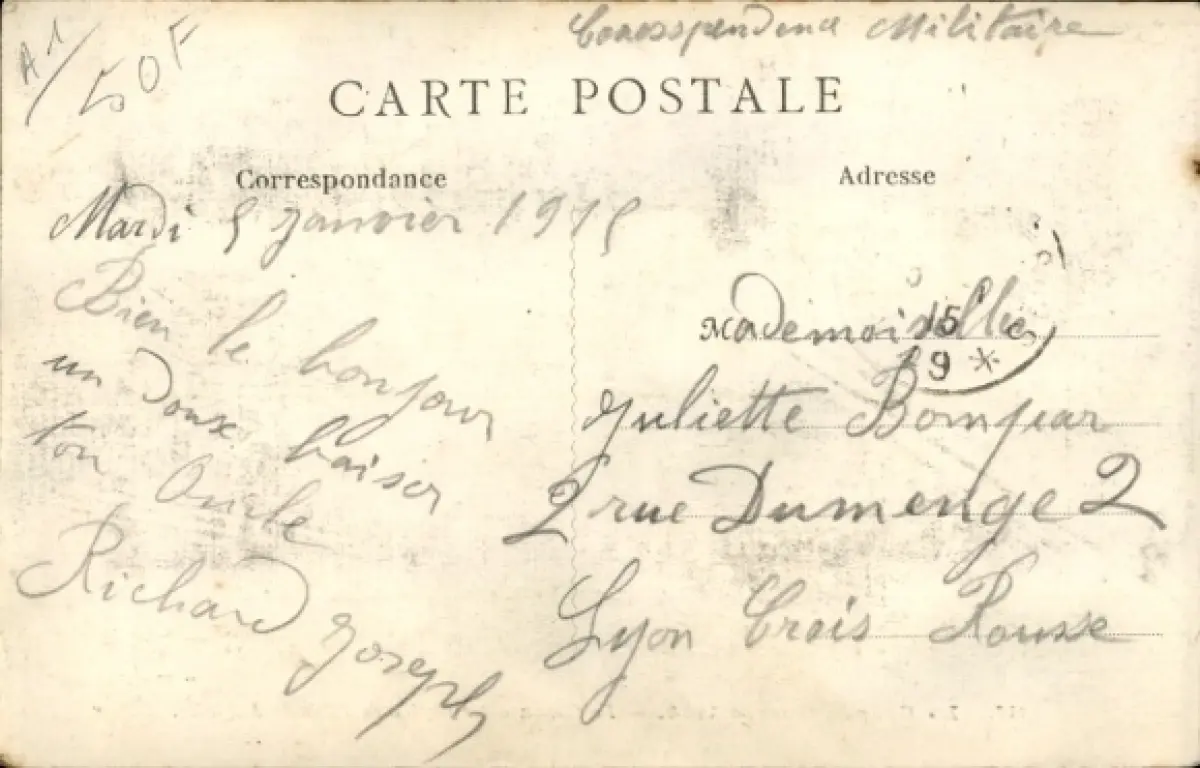 A1/
50F
Corosspondena Militaire
CARTE POSTALE
Correspondance
Adresse
Mardi 5 janvier 1915
Bien le bonjour
un Doux baiser
ton Oncle
Richard Joseph
Mademoiselle
15
9 *
Juliette Bonjear
2 rue Dumenge 2
Lyon Croix Rousse